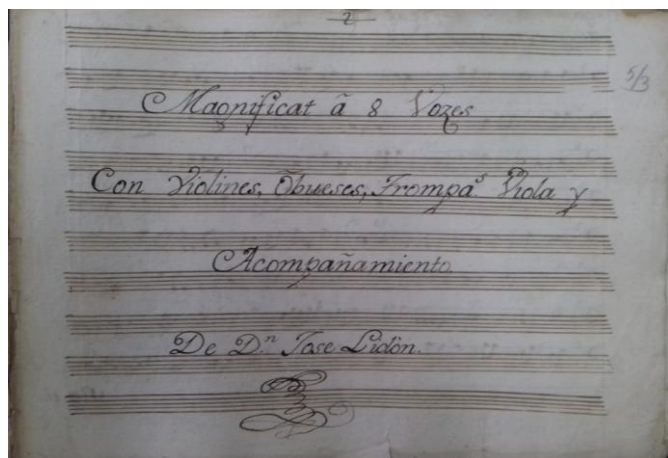 2
5/3
Magnificat â 8 Vozes
Con Violines, Obueses, Trompa.s Viola y
Acompañamiento.
De D.n Jose Lidòn.